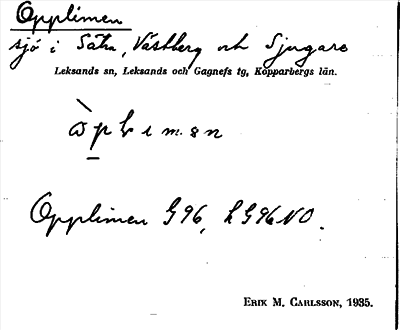 Opplimen
sjö i Sätra, Västberg och Sjugare
Leksands sn, Leksands och Gagnefs tg, Kopparbergs län.
Opplimen G96, LG96NO.
ERIK M. CARLSSON, 1935.